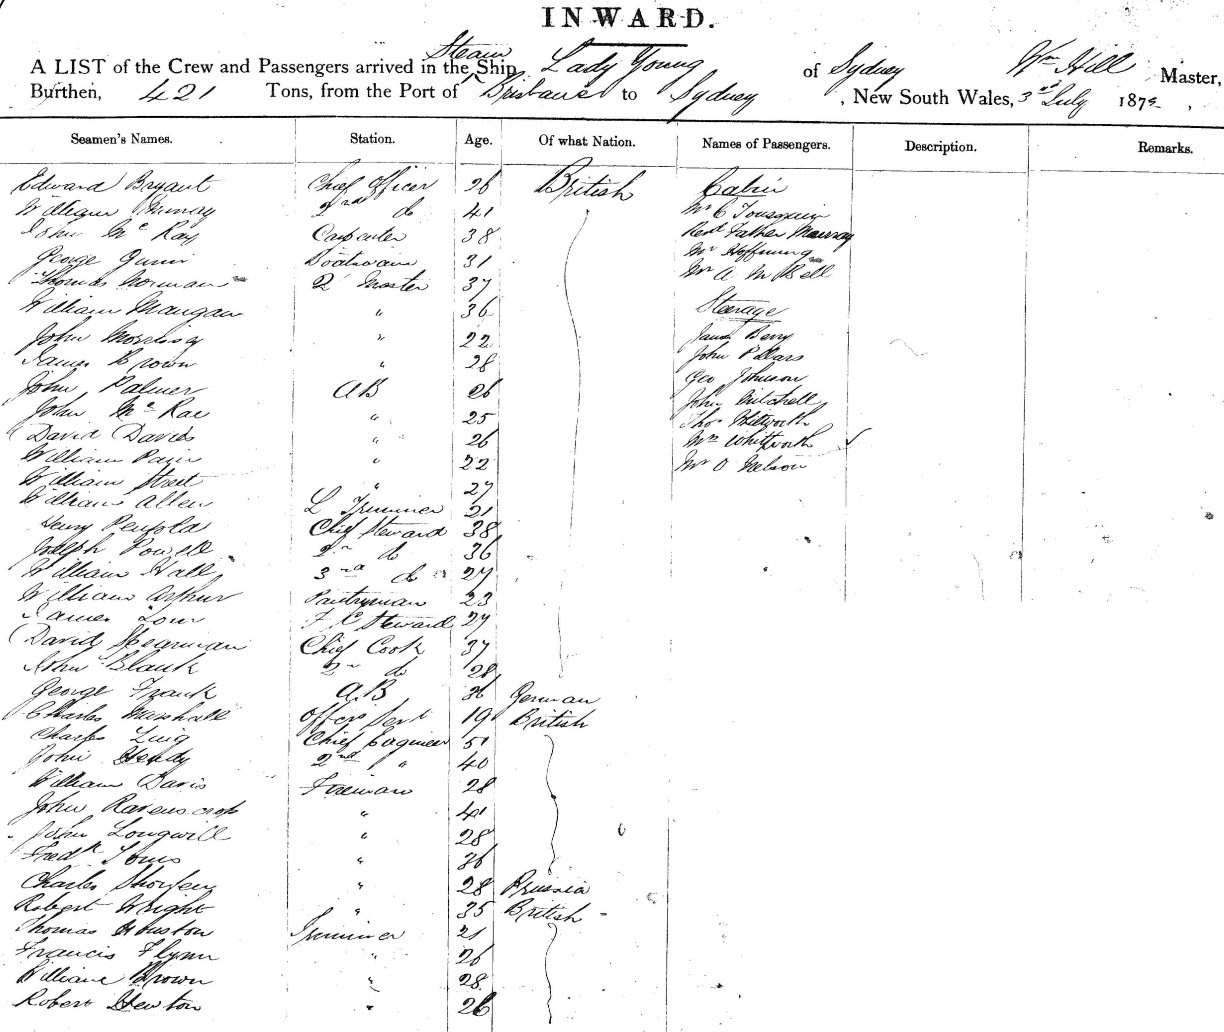 INWARD.
A LIST of the Crew and Passengers arrived in the Steam Ship Lady Young of Sydney Wm Hill Master,
Burthen, 421 Tons, from the Port of Brisbane to Sydney, New South Wales, 3rd July 187
Seamen's Names. Station. Age. Of what Nation. Names of Passengers. Description. Remarks.
Edward Bryant Chief Officer 26 British
William Murray 2nd do 41
John McKay Carpenter 38
George Gunn Boatswain 31
Thomas Norman Q Master 37
William Mangan " 36
John Morrissy " 22
James Brown " 28
John Palmer AB 26
John McRae " 25
David Davies " 26
William " 22
William Street " 27
William Allen L Trimmer 21
Henry Penfold Chief Steward 38
Joseph Powell 2nd do 36
William Hall 3rd do 27
William Arthur Pantryman 23
James F C Steward 27
David Spearman Chief Cook 37
John Blank 2nd do 28
George Frank A.B 36 German
Charles Marshall Offrs Servt 19 British
Charles Chief Engineer 51
John Hendy 2nd " 40
William Davis Fireman 28
John Ravenscrop " 41
John Longwill " 28
Fredk " 36
Charles " 28 Prussia
Robert Wright " 35 British
Thomas Houston Trimmer 21
Francis Flynn " 26
William Brown " 28
Robert Hewton " 26
Cabin
Mr C
Revd Father Murray
Mr Hoffnung
Mr A M Bell
Steerage
James Berry
John Pillars
Geo Johnson
John Mitchell
Thos Whitworth
Wm Whitworth
Mr O Nelson